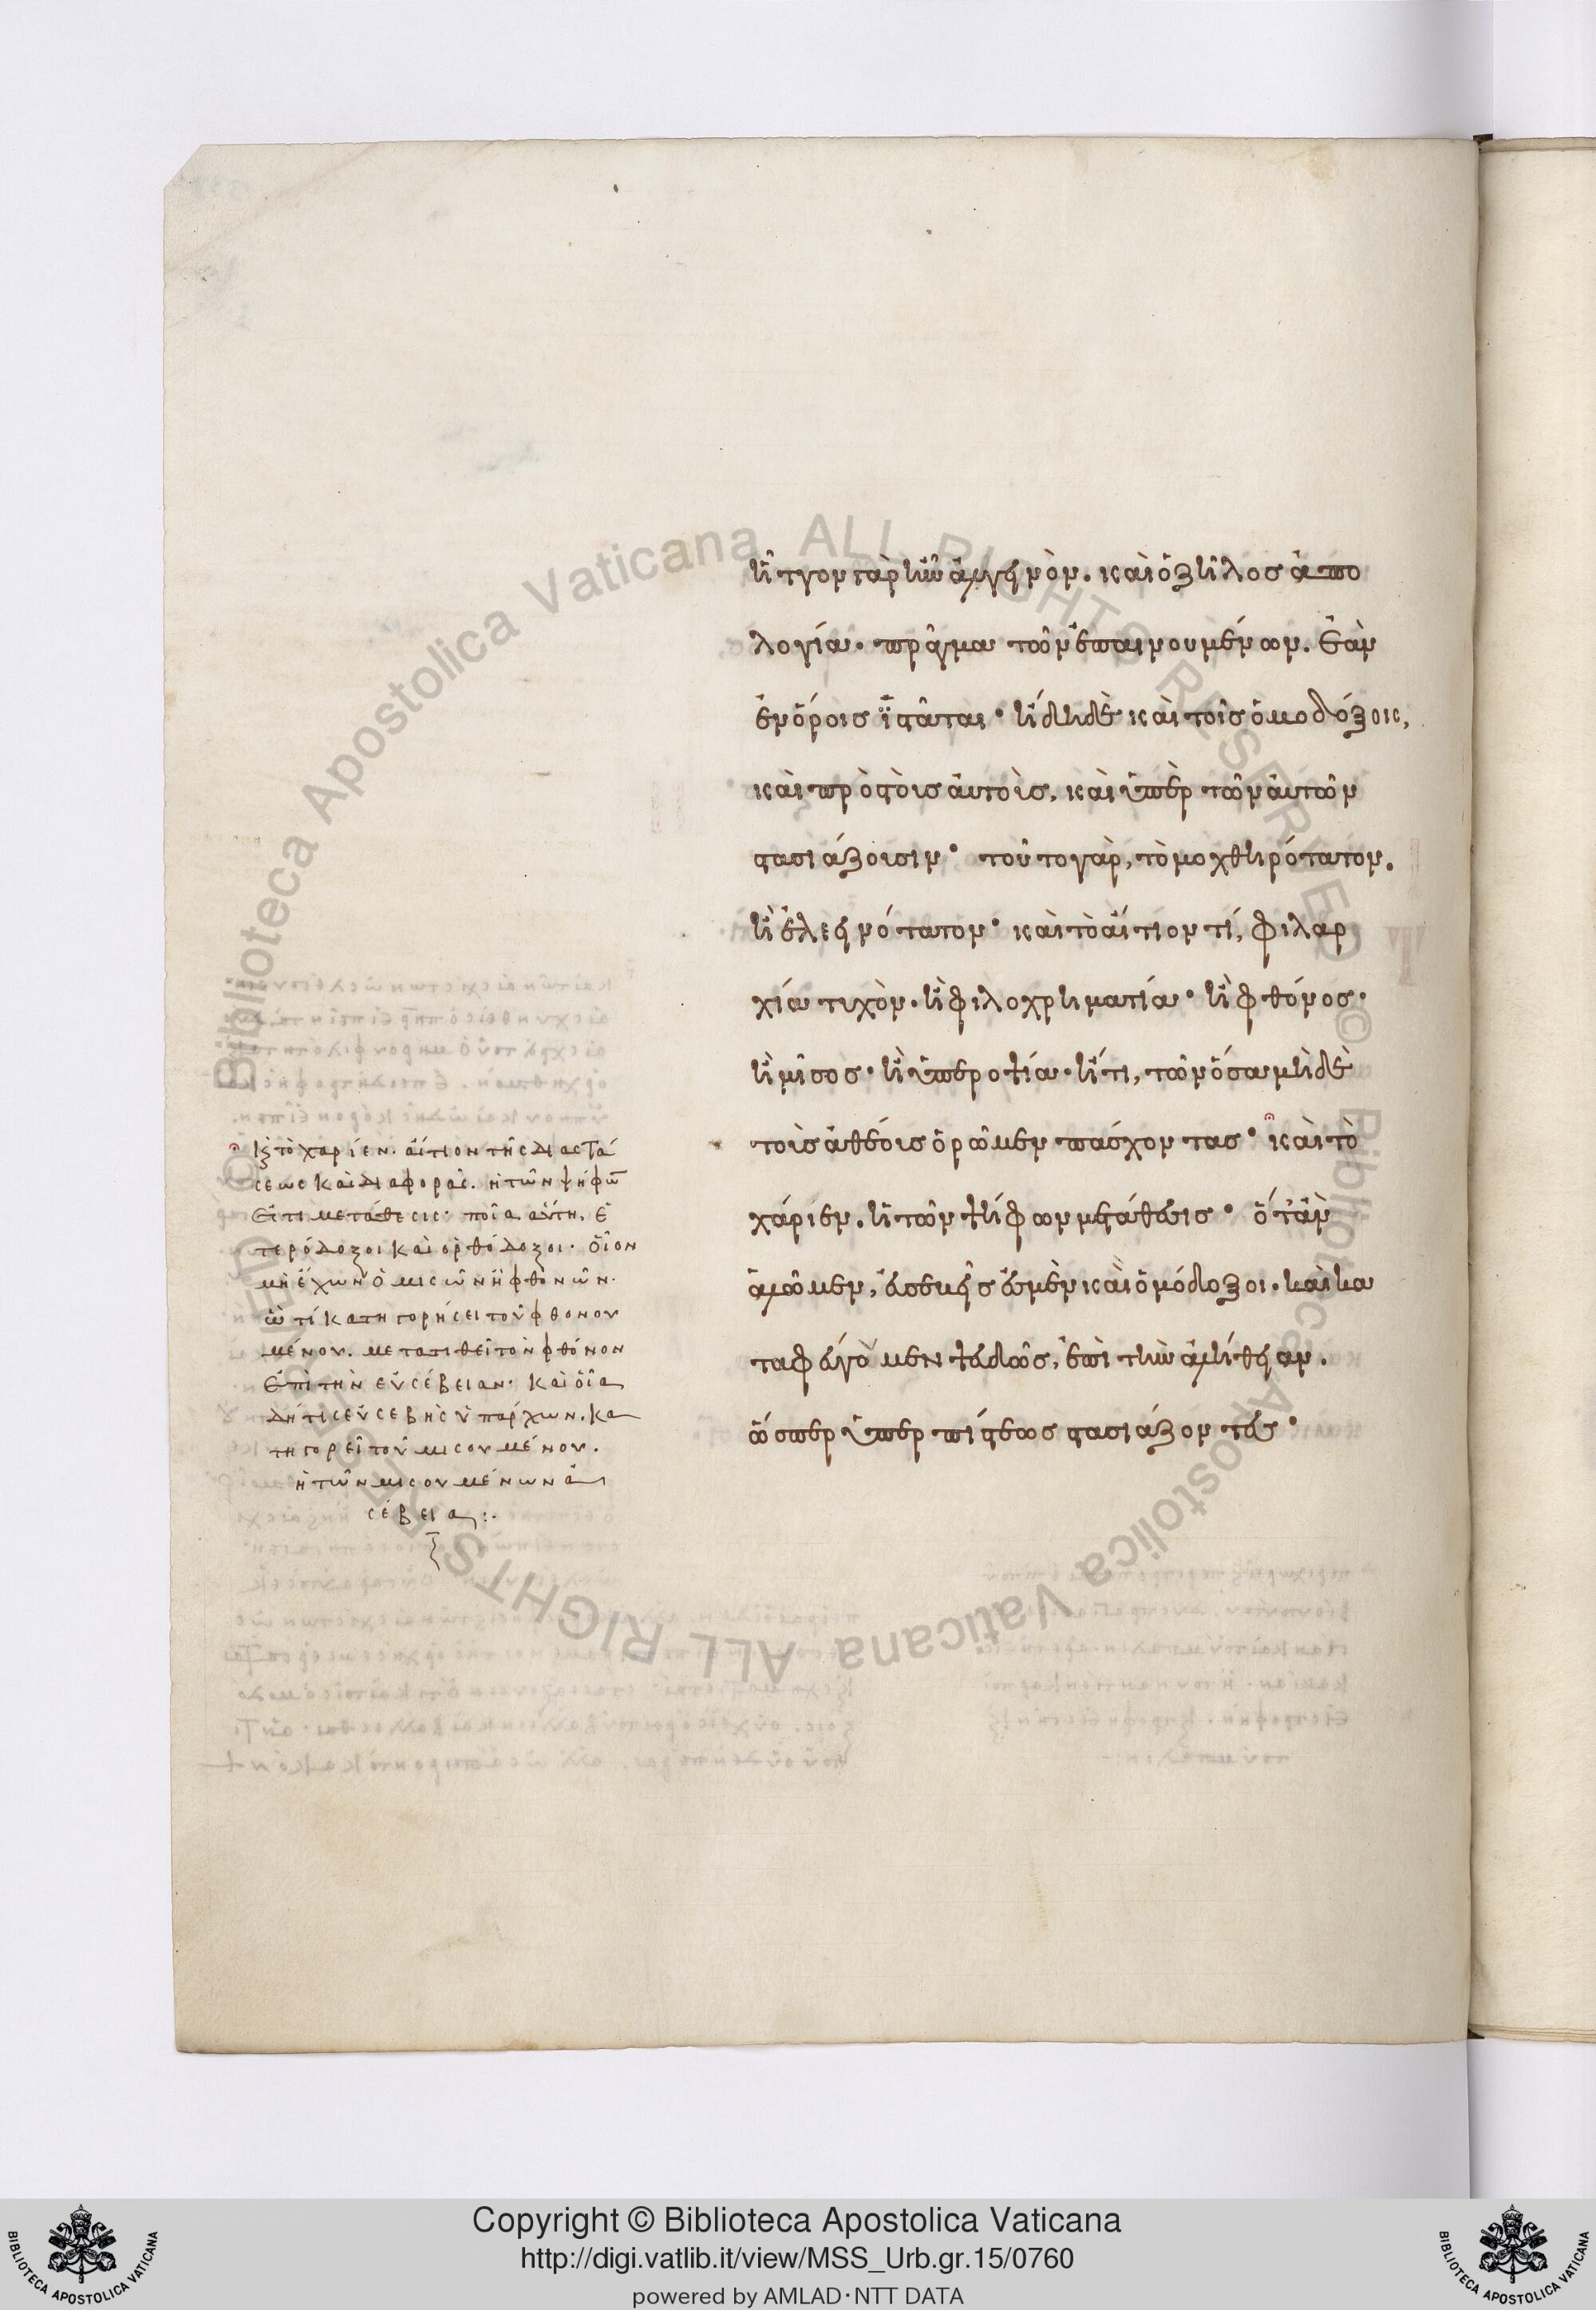 ἧττον παρῆν ἀμεινον. καὶ ὁ ζῆλος ἀπο
λογία. πρᾶγμα τῶν ἐπαινουμένων. ἐὰν
ἐν ὅροις ἵσταται· ἤδη δὲ καὶ τοῖς ὁμοδόξοις,
καὶ πρὸς τοὺς αὐτοὺς, καὶ ὑπὲρ τῶν αὐτῶν
στασιάζουσιν· τοῦτο γὰρ, τὸ μοχθηρότατον.
ἢ ἐλεεινότατον· καὶ τὸ αἴτιον τί, φιλαρ
χία τυχὸν. ἢ φιλοχρηματία. ἢ φθόνος.
ἢ μῖσος. ἢ ὑπεροψία. ἤ τι, τῶν ὅσα μὴ δὲ
τοὺς ἀθέους ὁρῶμεν πάσχοντας· καὶ τὸ
χάριεν. ἡ τῶν ψήφων μετάθεσις· ὅταν
ἁλῶμεν, εὐσεβεῖς ἐσμὲν καὶ ὁμόδοξοι. καὶ κα
ταφεύγομεν ψευδῶς, ἐπὶ τὴν ἀλήθειαν.
ὥσπερ ὑπὲρ πίστεως στασιάζοντες·
τὸ χαρίεν. αἴτιον τῆς διαστά
σεως καὶ διαφορᾶς. ἡ τῶν ψήφων
ἐστι μετάθεσις· ποῖα αὕτη. ἑ
τερόδοξοι καὶ ὀρθόδοξοι. οἷον
μὴ ἔχων ὁ μισῶν ἢ φθονῶν.
ὦ τί κατηγορήσει τοῦ φθονου
μένου. μετατιθεῖ τὸν φθόνον
ἐπὶ τὴν εὐσέβειαν. καὶ οἷα
δή τις εὐσεβὴς ὑπάρχων. κα
τηγορεῖ τοῦ μισουμένου.
ἡ τῶν μισουμένων ἀ
σέβεια:.
Copyright © Biblioteca Apostolica Vaticana
http://digi.vatlib.it/view/MSS_Urb.gr.15/0760
powered by AMLAD·NTT DATA
BIBLIOTECA APOSTOLICA VATICANA
BIBLIOTECA APOSTOLICA VATICANA
© Biblioteca Apostolica Vaticana ALL RIGHTS RESERVED
© Biblioteca Apostolica Vaticana ALL RIGHTS RESERVED